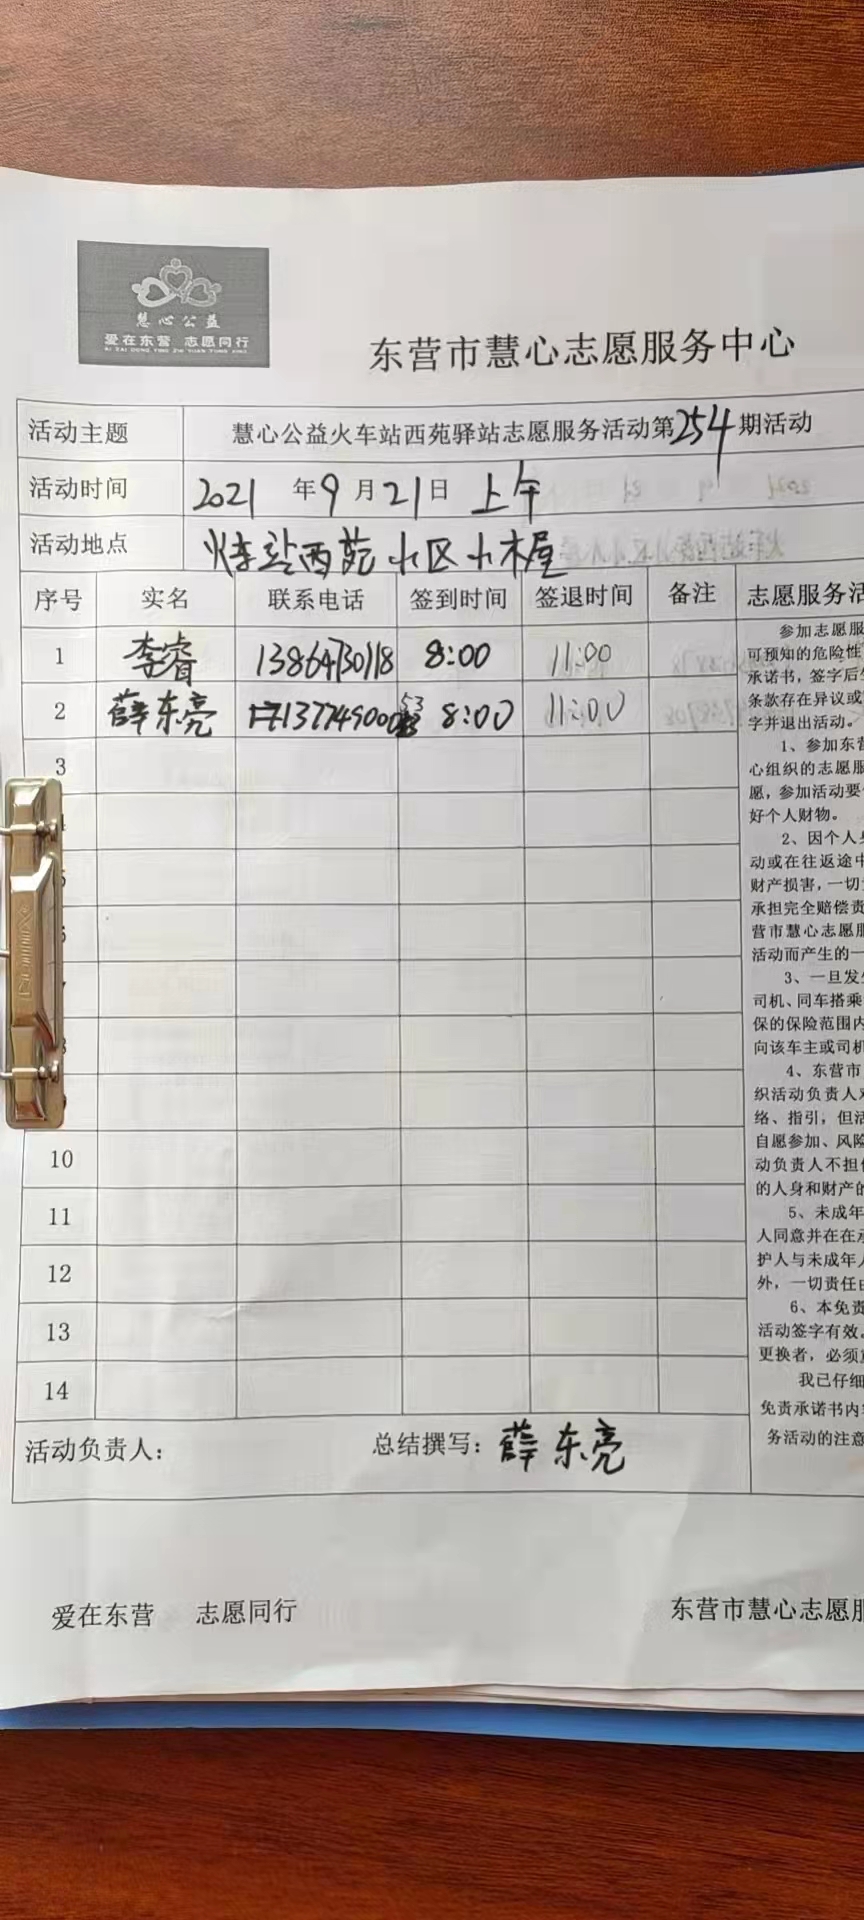 慧心公益
爱在东营 志愿同行
AI ZAI DONG YING ZHI YUAN TONG XING
东营市慧心志愿服务中心
活动主题 慧心公益火车站西苑驿站志愿服务活动第254期活动
活动时间 2021 年9月21日 上午
活动地点 火车站西苑小区小木屋
序号 实名 联系电话 签到时间 签退时间 备注 志愿服务活
1 李睿 13864730118 8:00 11:00
2 薛东亮 8:00 11:00
3
10
11
12
13
14
参加志愿服
可预知的危险性
承诺书，签字后生
条款存在异议或
字并退出活动。
1、参加东营
心组织的志愿服
愿，参加活动要
好个人财物。
2、因个人身
动或在往返途中
财产损害，一切
承担完全赔偿责
营市慧心志愿服
活动而产生的一
3、一旦发生
司机、同车搭乘
保的保险范围内
向该车主或司机
4、东营市
织活动负责人对
络、指引，但活
自愿参加、风险
动负责人不担
的人身和财产的
5、未成年
人同意并在在承
护人与未成年人
外，一切责任由
6、本免责
活动签字有效。
更换者，必须
我已仔细
免责承诺书内容
务活动的注意
活动负责人： 总结撰写：薛东亮
爱在东营 志愿同行 东营市慧心志愿服